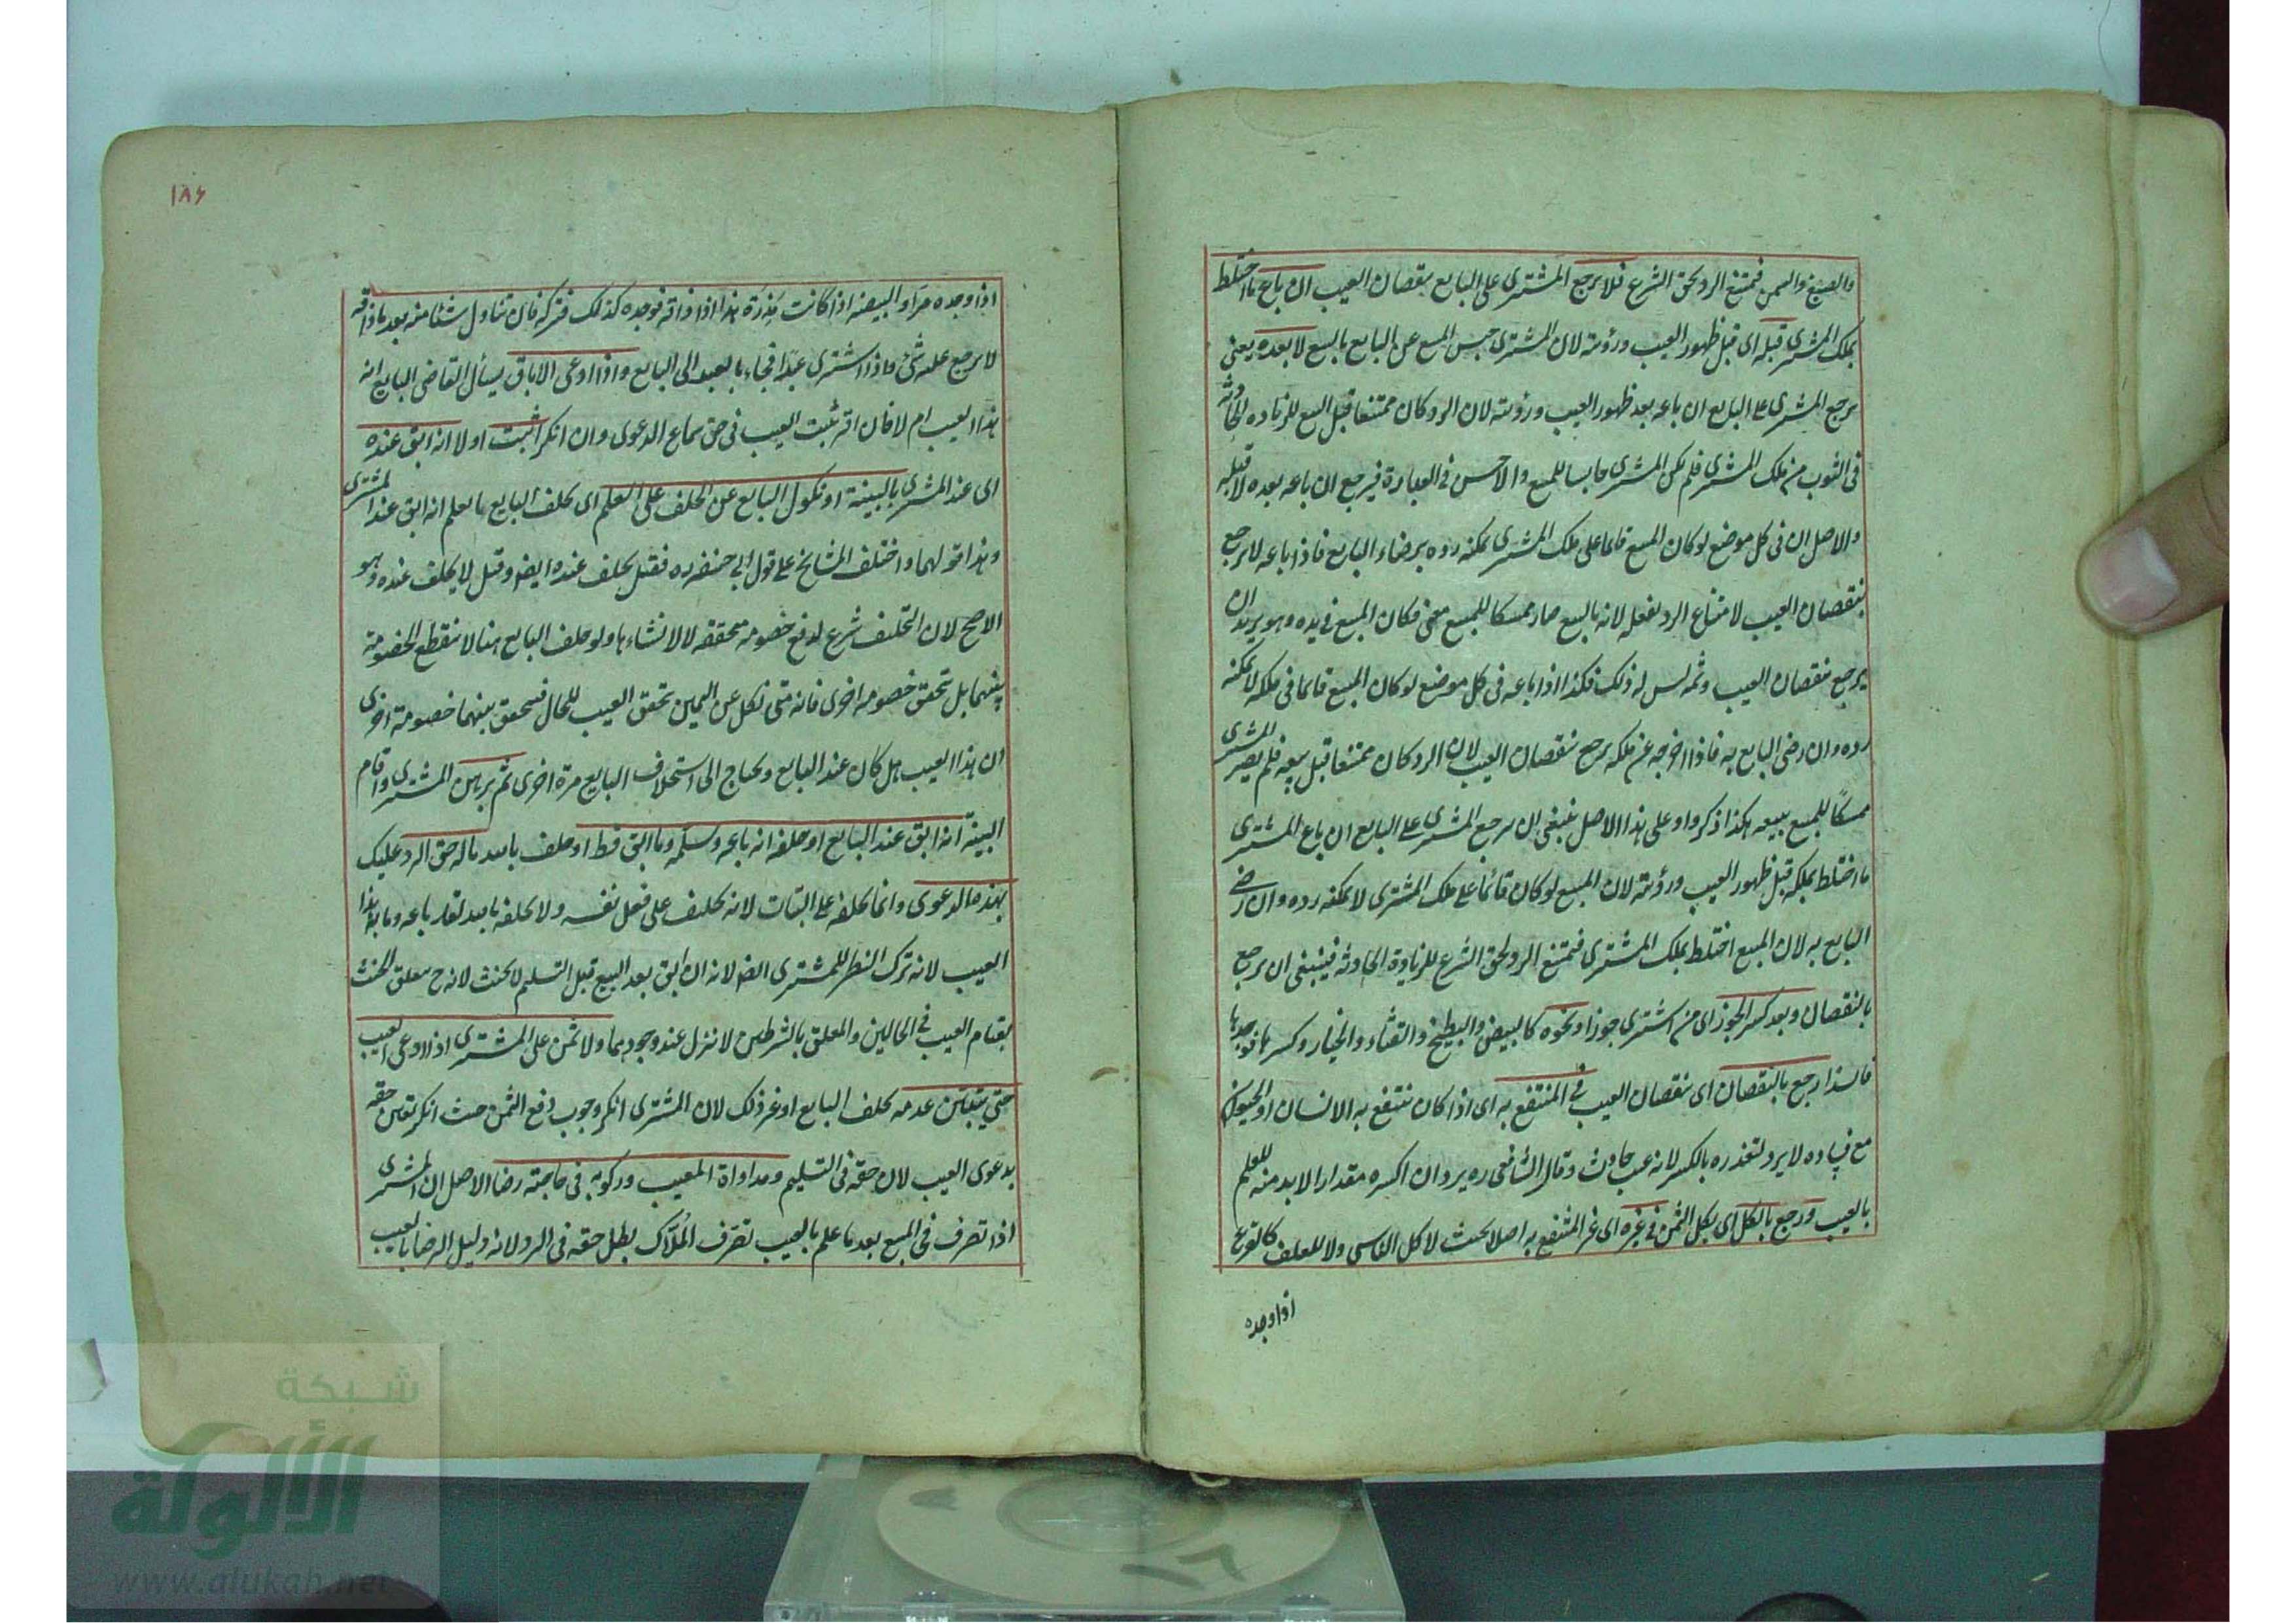 والصبغ والسمن فيمتنع الرد لحق الشرع فلا يرجع المشترى على البايع بنقصان العيب ان باع ما اختلط
بملك المشترى قبله اى قبل ظهور العيب ورؤيته لان المشترى حبس المبيع عن البايع بالبيع لا بعده يعنى
يرجع المشترى على البايع ان باعه بعد ظهور العيب ورؤيته لان الرد كان ممتنعا قبل البيع للزيادة الحادثة
فى الثوب من ملك المشترى فلم يكن المشترى حابسا للمبيع والاحسن فى العبارة فيرجع ان باعه بعده لا قبله
والاصل ان فى كل موضع لو كان المبيع قائما على ملك المشترى يمكنه رده برضاء البايع فاذا باعه لا يرجع
بنقصان العيب لامتناع الرد بفعله لانه بالبيع صار ممسكا للمبيع معنى فكان المبيع فى يده وهو يريد ان
يرجع بنقصان العيب وثمه ليس له ذلك فكذا اذا باعه فى كل موضع لو كان المبيع قائما فى ملكه لا يمكنه
رده وان رضى البايع به فاذا اخرجه عن ملكه يرجع بنقصان العيب لان الرد كان ممتنعا قبل بيعه فلم يصر المشترى
ممسكاً للمبيع ببيعه هكذا ذكروا وعلى هذا الاصل ينبغى ان يرجع المشترى على البايع ان باع المشترى
ما اختلط بملكه قبل ظهور العيب ورؤيته لان المبيع لو كان قائما على ملك المشترى لا يمكنه رده وان رضى
البايع به لان المبيع اختلط بملك المشترى فيمتنع الرد لحق الشرع للزيادة الحادثة فينبغى ان يرجع
بالنقصان وبعد كسر الجوز اى من اشترى جوزا ونحوه كالبيض والبطيخ والقثاء والخيار وكسرها فوجدها
فاسدا رجع بالنقصان اى بنقصان العيب فى المنتفع به اى اذا كان ينتفع به الانسان او الحيوان
مع فساده لا يرد لتعذره بالكسر لانه عيب حادث وقال الشافعى ره يرد ان اكسره مقدارا لا بد منه للعلم
بالعيب ورجع بالكل اى بكل الثمن فى غيره اى غير المنتفع به اصلا بحيث لا كل الناس ولا للعلف كالقرع
اذا وجده
١٨٦
اذا وجده مرّا والبيضة اذا كانت مَذِرَة هذا اذا ذاقه فوجده كذلك فتركه فان تناول شئا منه بعد ما ذاقه
لا يرجع عليه بشئ واذا اشترى عبدا فجاء بالعبد الى البايع واذا ادعى الاباق يسأل القاضى البايع انه
هذا العيب ام لا فان اقر ثبت العيب فى حق سماع الدعوى وان انكر اثبت اولا انه ابق عنده
اى عند المشترى بالبينة او نكول البايع عن الحلف على العلم اى يحلف البايع ما يعلم انه ابق عند المشترى
وهذا قولهما واختلف المشايخ على قول ابى حنيفة ره فقيل يحلف عنده ايضا وقيل لا يحلف عنده وهو
الاصح لان التحليف شرع لدفع خصومة متحققة لا لانشاءها ولو حلف البايع هنا لا تنقطع الخصومة
بينهما بل تتحقق خصومة اخرى فانه متى نكل عن اليمين تحقق العيب للحال فيتحقق بينهما خصومة اخرى
ان هذا العيب هل كان عند البايع ويحتاج الى استحلاف البايع مرة اخرى ثم برهن المشترى واقام
البينة انه ابق عند البايع او حلفه انه باعه وسلمه وما ابق قط او حلف بالله ماله حق الرد عليك
بهذه الدعوى وانما يحلفه على البتات لانه تحليف على فعل نفسه ولا يحلفه بالله لقد باعه وما به هذا
العيب لانه ترك النظر للمشترى ايضا لانه ان ابق بعد البيع قبل التسليم لا يحنث لانه ح يتعلق الحنث
بقيام العيب فى الحالين والمعلق بالشرطين لا ينزل عند وجودهما ولا ثمن على المشترى اذا ادعى العيب
حتى يتبين عدمه بحلف البايع او غير ذلك لان المشترى انكر وجوب دفع الثمن حيث انكر تعين حقه
بدعوى العيب لان حقه فى التسليم ومداواة المعيب وركوبه فى حاجته رضا الاصل ان المشترى
اذا تصرف فى المبيع بعد ما علم بالعيب تصرف المُلّاك بطل حقه فى الرد لانه دليل الرضا بالعيب
شبكة
الألوكة
www.alukah.net